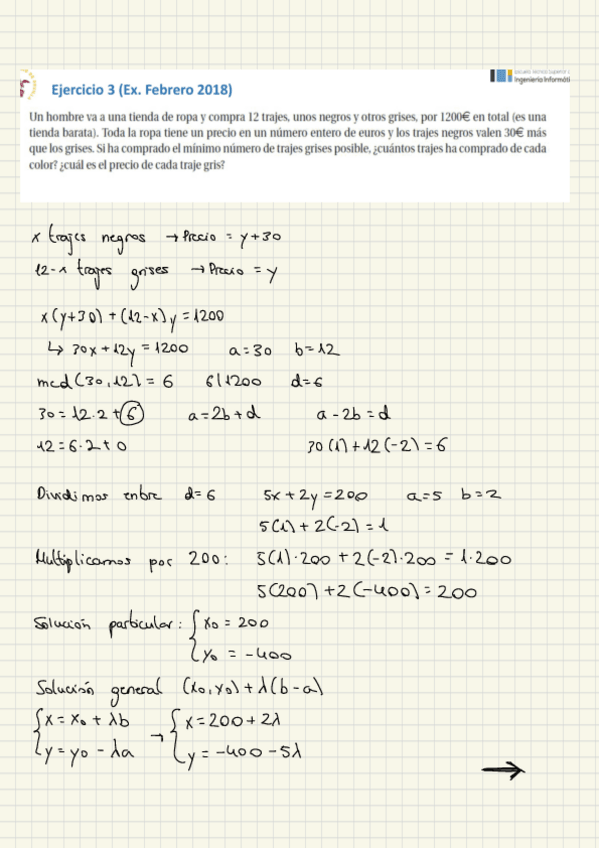 Escuela Técnica Superior
Ingeniería Informáti
Ejercicio 3 (Ex. Febrero 2018)
Un hombre va a una tienda de ropa y compra 12 trajes, unos negros y otros grises, por 1200€ en total (es una
tienda barata). Toda la ropa tiene un precio en un número entero de euros y los trajes negros valen 30€ más
que los grises. Si ha comprado el mínimo número de trajes grises posible, ¿cuántos trajes ha comprado de cada
color? ¿cuál es el precio de cada traje gris?
x trajes negros → Precio = y+30
12-x trajes grises → Precio = y
x(y+30) + (12-x)y = 1200
↳ 30x + 12y = 1200 a=30 b=12
mcd(30,12) = 6 6|1200 d=6
30 = 12·2 + 6 a=2b+d a-2b=d
12 = 6·2 + 0 30(1)+12(-2)=6
Dividimos entre d=6 5x+2y=200 a=5 b=2
5(1)+2(-2)=1
Multiplicamos por 200: 5(1)·200 + 2(-2)·200 = 1·200
5(200) + 2(-400) = 200
Solución particular: { x₀ = 200
y₀ = -400
Solución general (x₀,y₀) + λ(b-a)
{ x = x₀ + λb → { x = 200 + 2λ
y = y₀ - λa y = -400 - 5λ
→